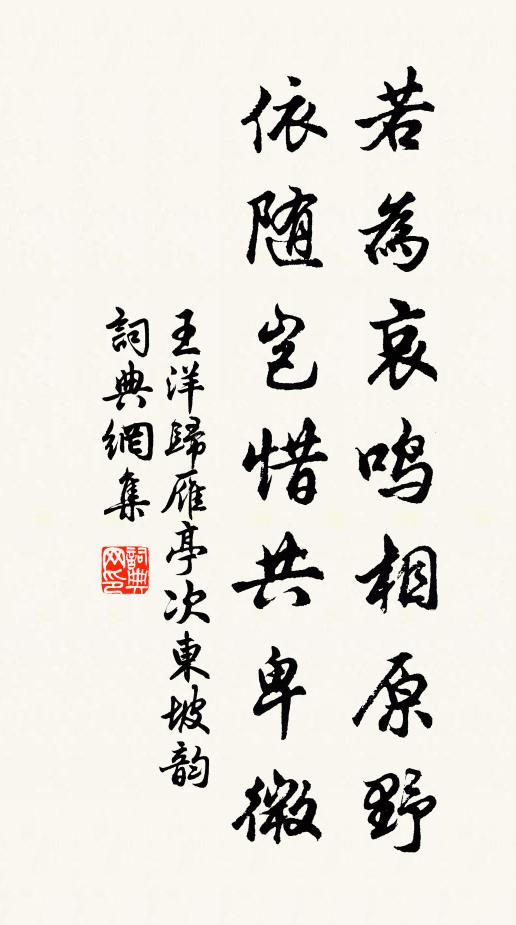 若為哀鳴相原野
依随豈惜共卑微
王洋歸雁亭次東坡韵
詞典網集
詞典网印